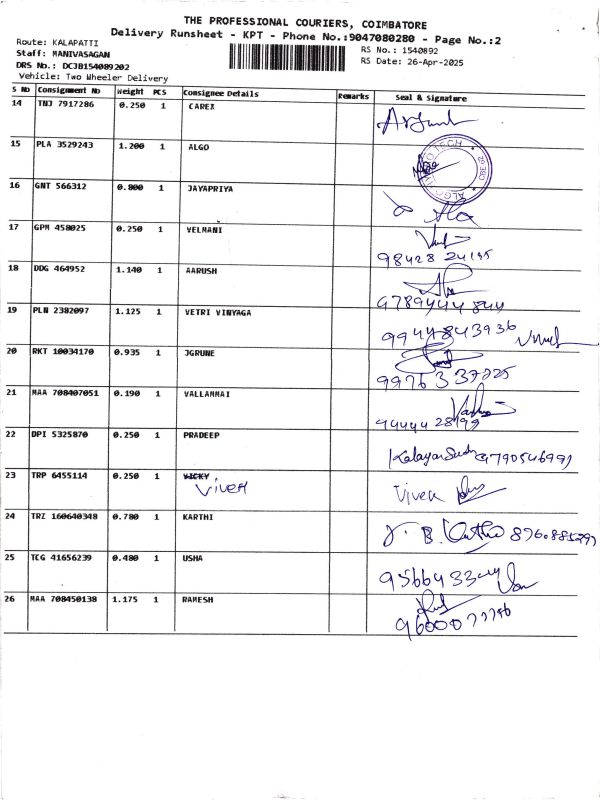 THE PROFESSIONAL COURIERS, COIMBATORE
Delivery Runsheet - KPT - Phone No.:9047080280 - Page No.:2
Route: KALAPATTI
Staff: MANIVASAGAN
DRS No.: DCJB154089202
Vehicle: Two Wheeler Delivery
RS No.: 1540892
RS Date: 26-Apr-2025
S No Consignment No Weight PCS Consignee Details Remarks Seal & Signature
14 TNJ 7917286 0.250 1 CAREX
15 PLA 3529243 1.200 1 ALGO
16 GNT 566312 0.800 1 JAYAPRIYA
17 GPM 458025 0.250 1 VELMANI
98428 24195
18 DDG 464952 1.140 1 AARUSH
9789444 844
19 PLN 2382097 1.125 1 VETRI VINYAGA
9944843936
20 RKT 10034170 0.935 1 JGRUNE
9976337225
21 MAA 708407051 0.190 1 VALLAMMAI
94444 28199
22 DPI 5325870 0.250 1 PRADEEP
9790546991
23 TRP 6455114 0.250 1 VICKY
Vivek Vivek
24 TRZ 160640348 0.780 1 KARTHI
25 TCG 41656239 0.480 1 USHA
26 MAA 708450138 1.175 1 RAMESH